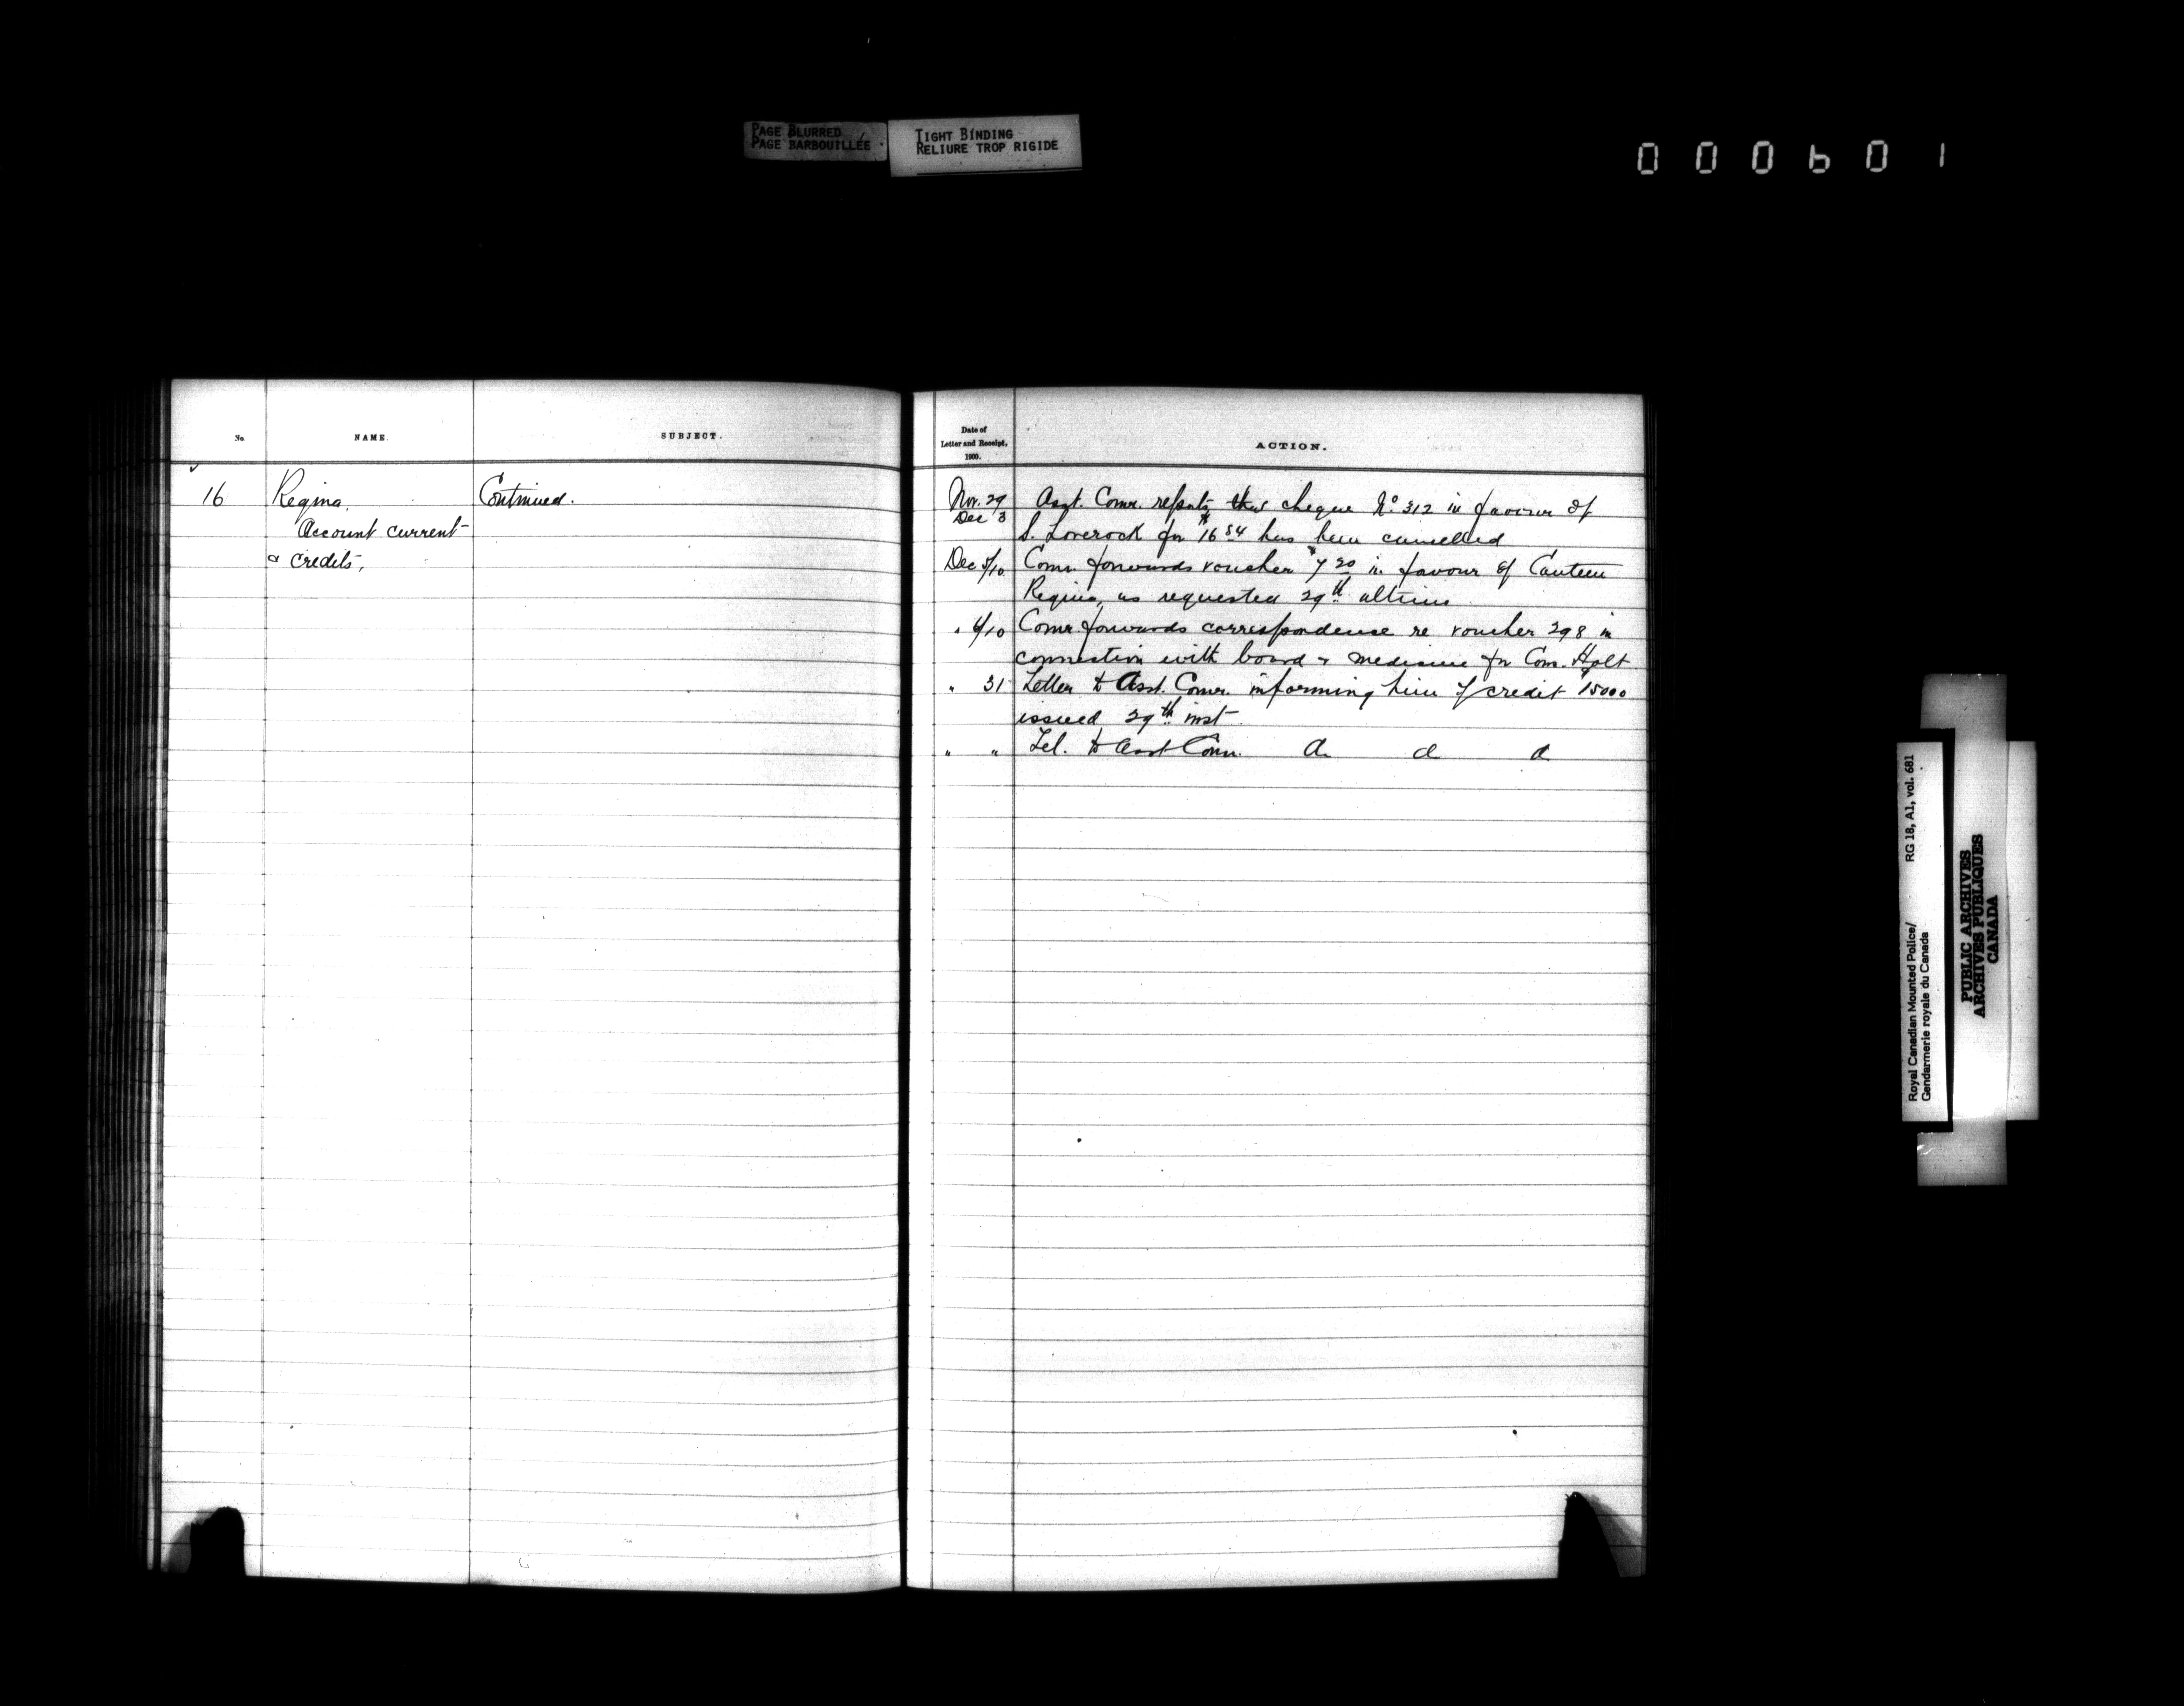 PAGE BLURRED
PAGE BARBOUILLÉE
TIGHT BINDING
RELIURE TROP RIGIDE
000601
No. NAME. SUBJECT.
16 Regina. Continued.
Account current
& credits,
Date of
Letter and Receipt.
1900.
ACTION.
Nov. 29 Asst. Comr. reports that cheque No 312 in favour of
Dec 3 S. Loverock for $16 54 has been cancelled
Dec 5/10 Comr. forwards voucher $7 20 in favour of Canteen
Regina, as requested 29th ultimo
" 6/10 Comr. forwards correspondence re voucher 298 in
connection with board & medicine for Con. Holt
" 31 Letter to Asst. Comr. informing him of credit $15000
issued 29th inst.
" " Tel. to Asst Comr. d d d
Royal Canadian Mounted Police/ RG 18, A1, vol. 681
Gendarmerie royale du Canada
PUBLIC ARCHIVES
ARCHIVES PUBLIQUES
CANADA